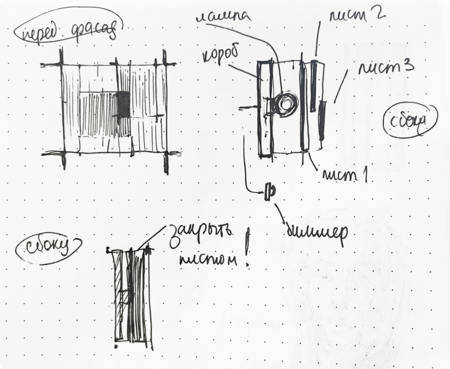 перед. фасад
лампа
лист 2
короб
лист 3
сбоку
лист 1
диммер
сбоку
закрыть
листом!